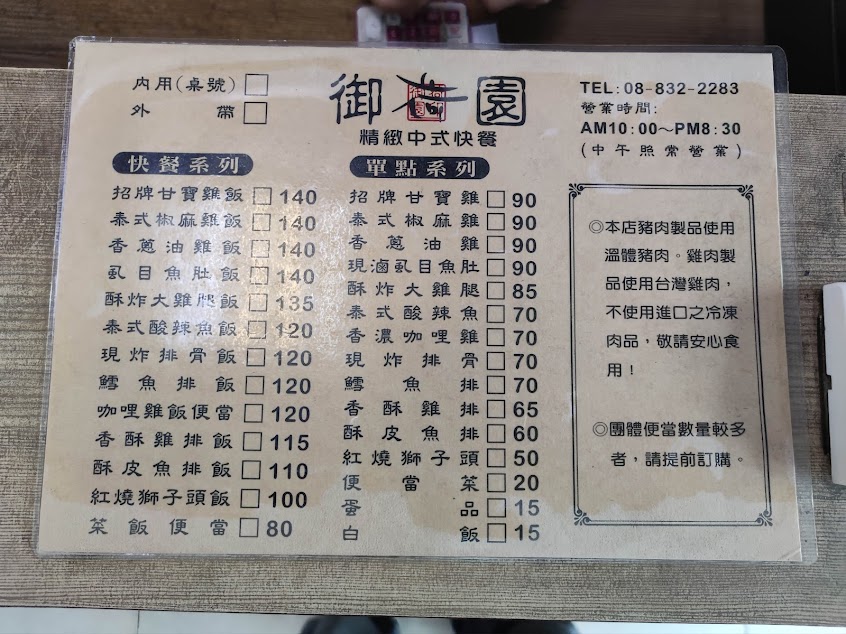 內用(桌號)□
外帶□
御 園
精緻中式快餐
TEL:08-832-2283
營業時間:
AM10:00~PM8:30
(中午照常營業)
快餐系列
招牌甘寶雞飯□140
泰式椒麻雞飯□140
香蔥油雞飯□140
虱目魚肚飯□140
酥炸大雞腿飯□135
泰式酸辣魚飯□120
現炸排骨飯□120
鱈魚排飯□120
咖哩雞飯便當□120
香酥雞排飯□115
酥皮魚排飯□110
紅燒獅子頭飯□100
菜飯便當□80
單點系列
招牌甘寶雞□90
泰式椒麻雞□90
香蔥油雞□90
現滷虱目魚肚□90
酥炸大雞腿□85
泰式酸辣魚□70
香濃咖哩雞□70
現炸排骨□70
鱈魚排□70
香酥雞排□65
酥皮魚排□60
紅燒獅子頭□50
便當菜□20
蛋品□15
白飯□15
◎本店豬肉製品使用
溫體豬肉。雞肉製
品使用台灣雞肉，
不使用進口之冷凍
肉品，敬請安心食
用！
◎團體便當數量較多
者，請提前訂購。